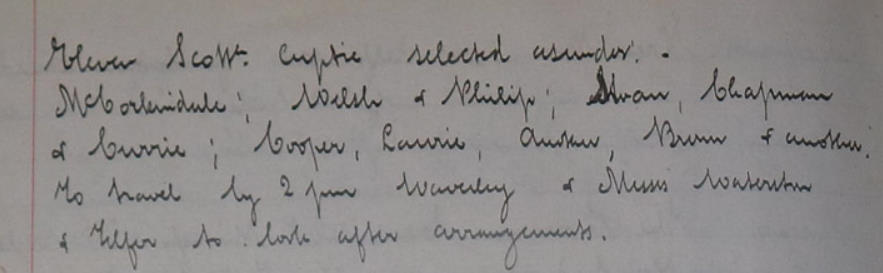 Eleven Scott. Cuptie selected asunder. -
McCorkindale; Welsh & Philip; Swan, Chapman
& Currie; Cooper, Lawrie, Another, Brown & another.
To travel by 2 pm Waverley & Messrs Waterston
& Telfer to look after arrangements.